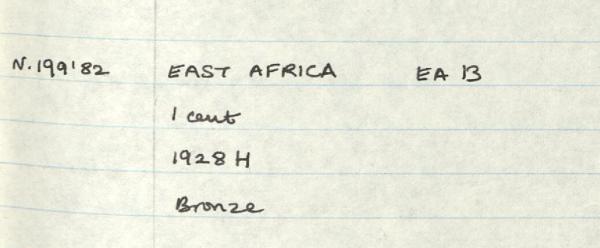 N.199'82 EAST AFRICA EA 13
1 cent
1928 H
Bronze